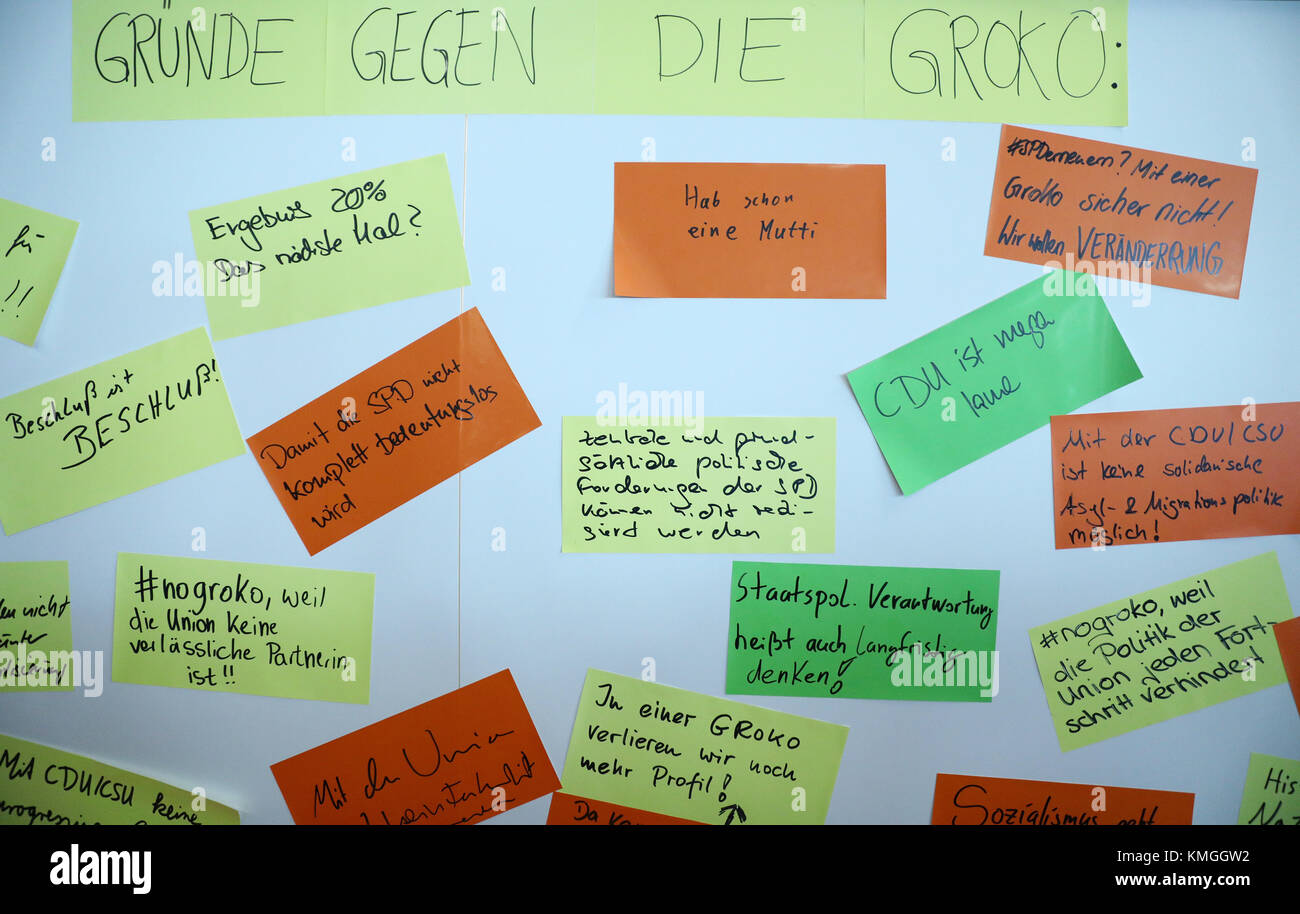 GRÜNDE GEGEN DIE GROKO:
für
!!
Ergebnis 20%
Das nächste Mal?
Hab schon
eine Mutti
#SPDerneuern? Mit einer
GroKo sicher nicht!
Wir wollen VERÄNDERRUNG
Beschluß ist
BESCHLUß!
Damit die SPD nicht
komplett bedeutungslos
wird
CDU ist mega
lame
zentrale und grund-
sätzliche politische
Forderungen der SPD
können nicht reali-
siert werden
Mit der CDU/CSU
ist keine solidarische
Asyl- & Migrationspolitik
möglich!
nicht
#nogroko, weil
die Union keine
verlässliche Partnerin
ist!!
Staatspol. Verantwortung
heißt auch Langfristig
denken!
#nogroko, weil
die Politik der
Union jeden Fort-
schritt verhindert
Mit CDU/CSU keine
Mit der Union
In einer GROKO
verlieren wir noch
mehr Profil!
Da
Sozialismus geht
His
alamy stock photo
Image ID: KMGGW2
www.alamy.com